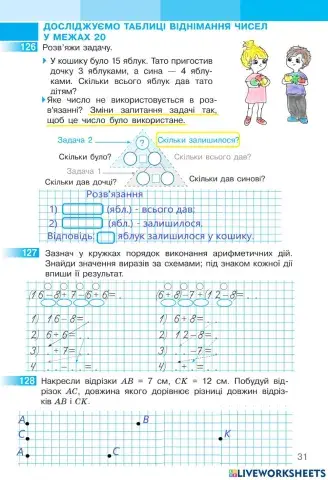 ДОСЛІДЖУЄМО ТАБЛИЦІ ВІДНІМАННЯ ЧИСЕЛ
У МЕЖАХ 20
126 Розв'яжи задачу.
У кошику було 15 яблук. Тато пригостив
дочку 3 яблуками, а сина — 4 яблу-
ками. Скільки всього яблук дав тато
дітям?
Яке число не використовується в роз-
в'язанні? Зміни запитання задачі так,
щоб це число було використане.
Задача 2
?
Скільки залишилося?
Скільки було?
Скільки всього дав?
Задача 1
Скільки дав дочці?
Скільки дав синові?
Розв'язання
1) (ябл.) - всього дав.
2) (ябл.) - залишилося.
Відповідь: яблук залишилося у кошику.
127 Зазнач у кружках порядок виконання арифметичних дій.
Знайди значення виразів за схемами; під знаком кожної дії
впиши її результат.
(16-8)+7-(6+6)=
(6+8)-7+(12-8)=
1) 16-8=
1) 6+8=
2) 6+6=
2) 12-8=
3) +7=
3) -7=
4) - =
4) + =
128 Накресли відрізки AB = 7 см, CK = 12 см. Побудуй від-
різок AC, довжина якого дорівнює різниці довжин відріз-
ків AB і CK.
A
B
C
K
A
C
31
LIVEWORKSHEETS